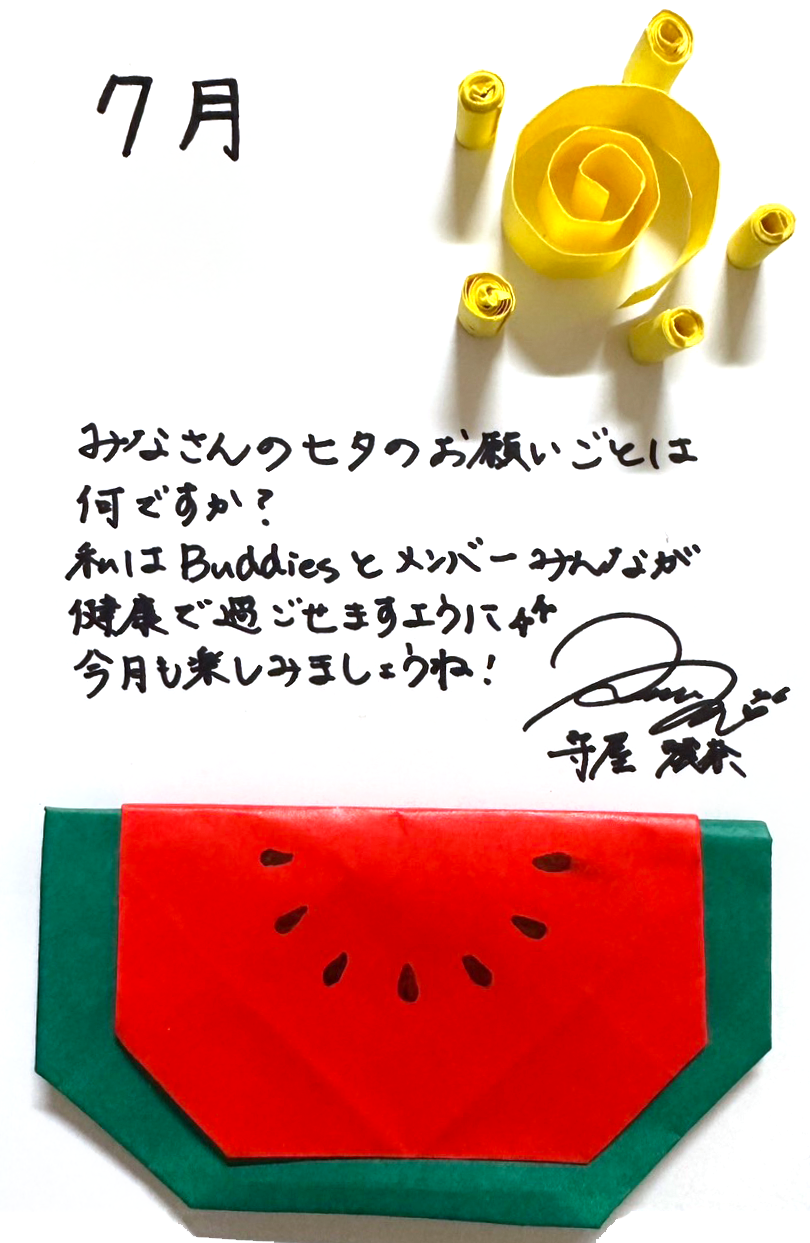 7月
みなさんの七夕のお願いごとは
何ですか?
私はBuddiesとメンバーみんなが
健康で過ごせますように
今月も楽しみましょうね!
守屋 麗奈